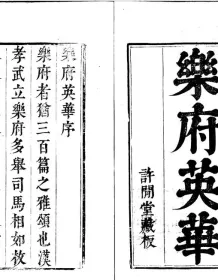 樂府英華
許閒堂藏板
樂府英華序
樂府者猶三百篇之雅頌也漢
孝武立樂府多舉司馬相如攸